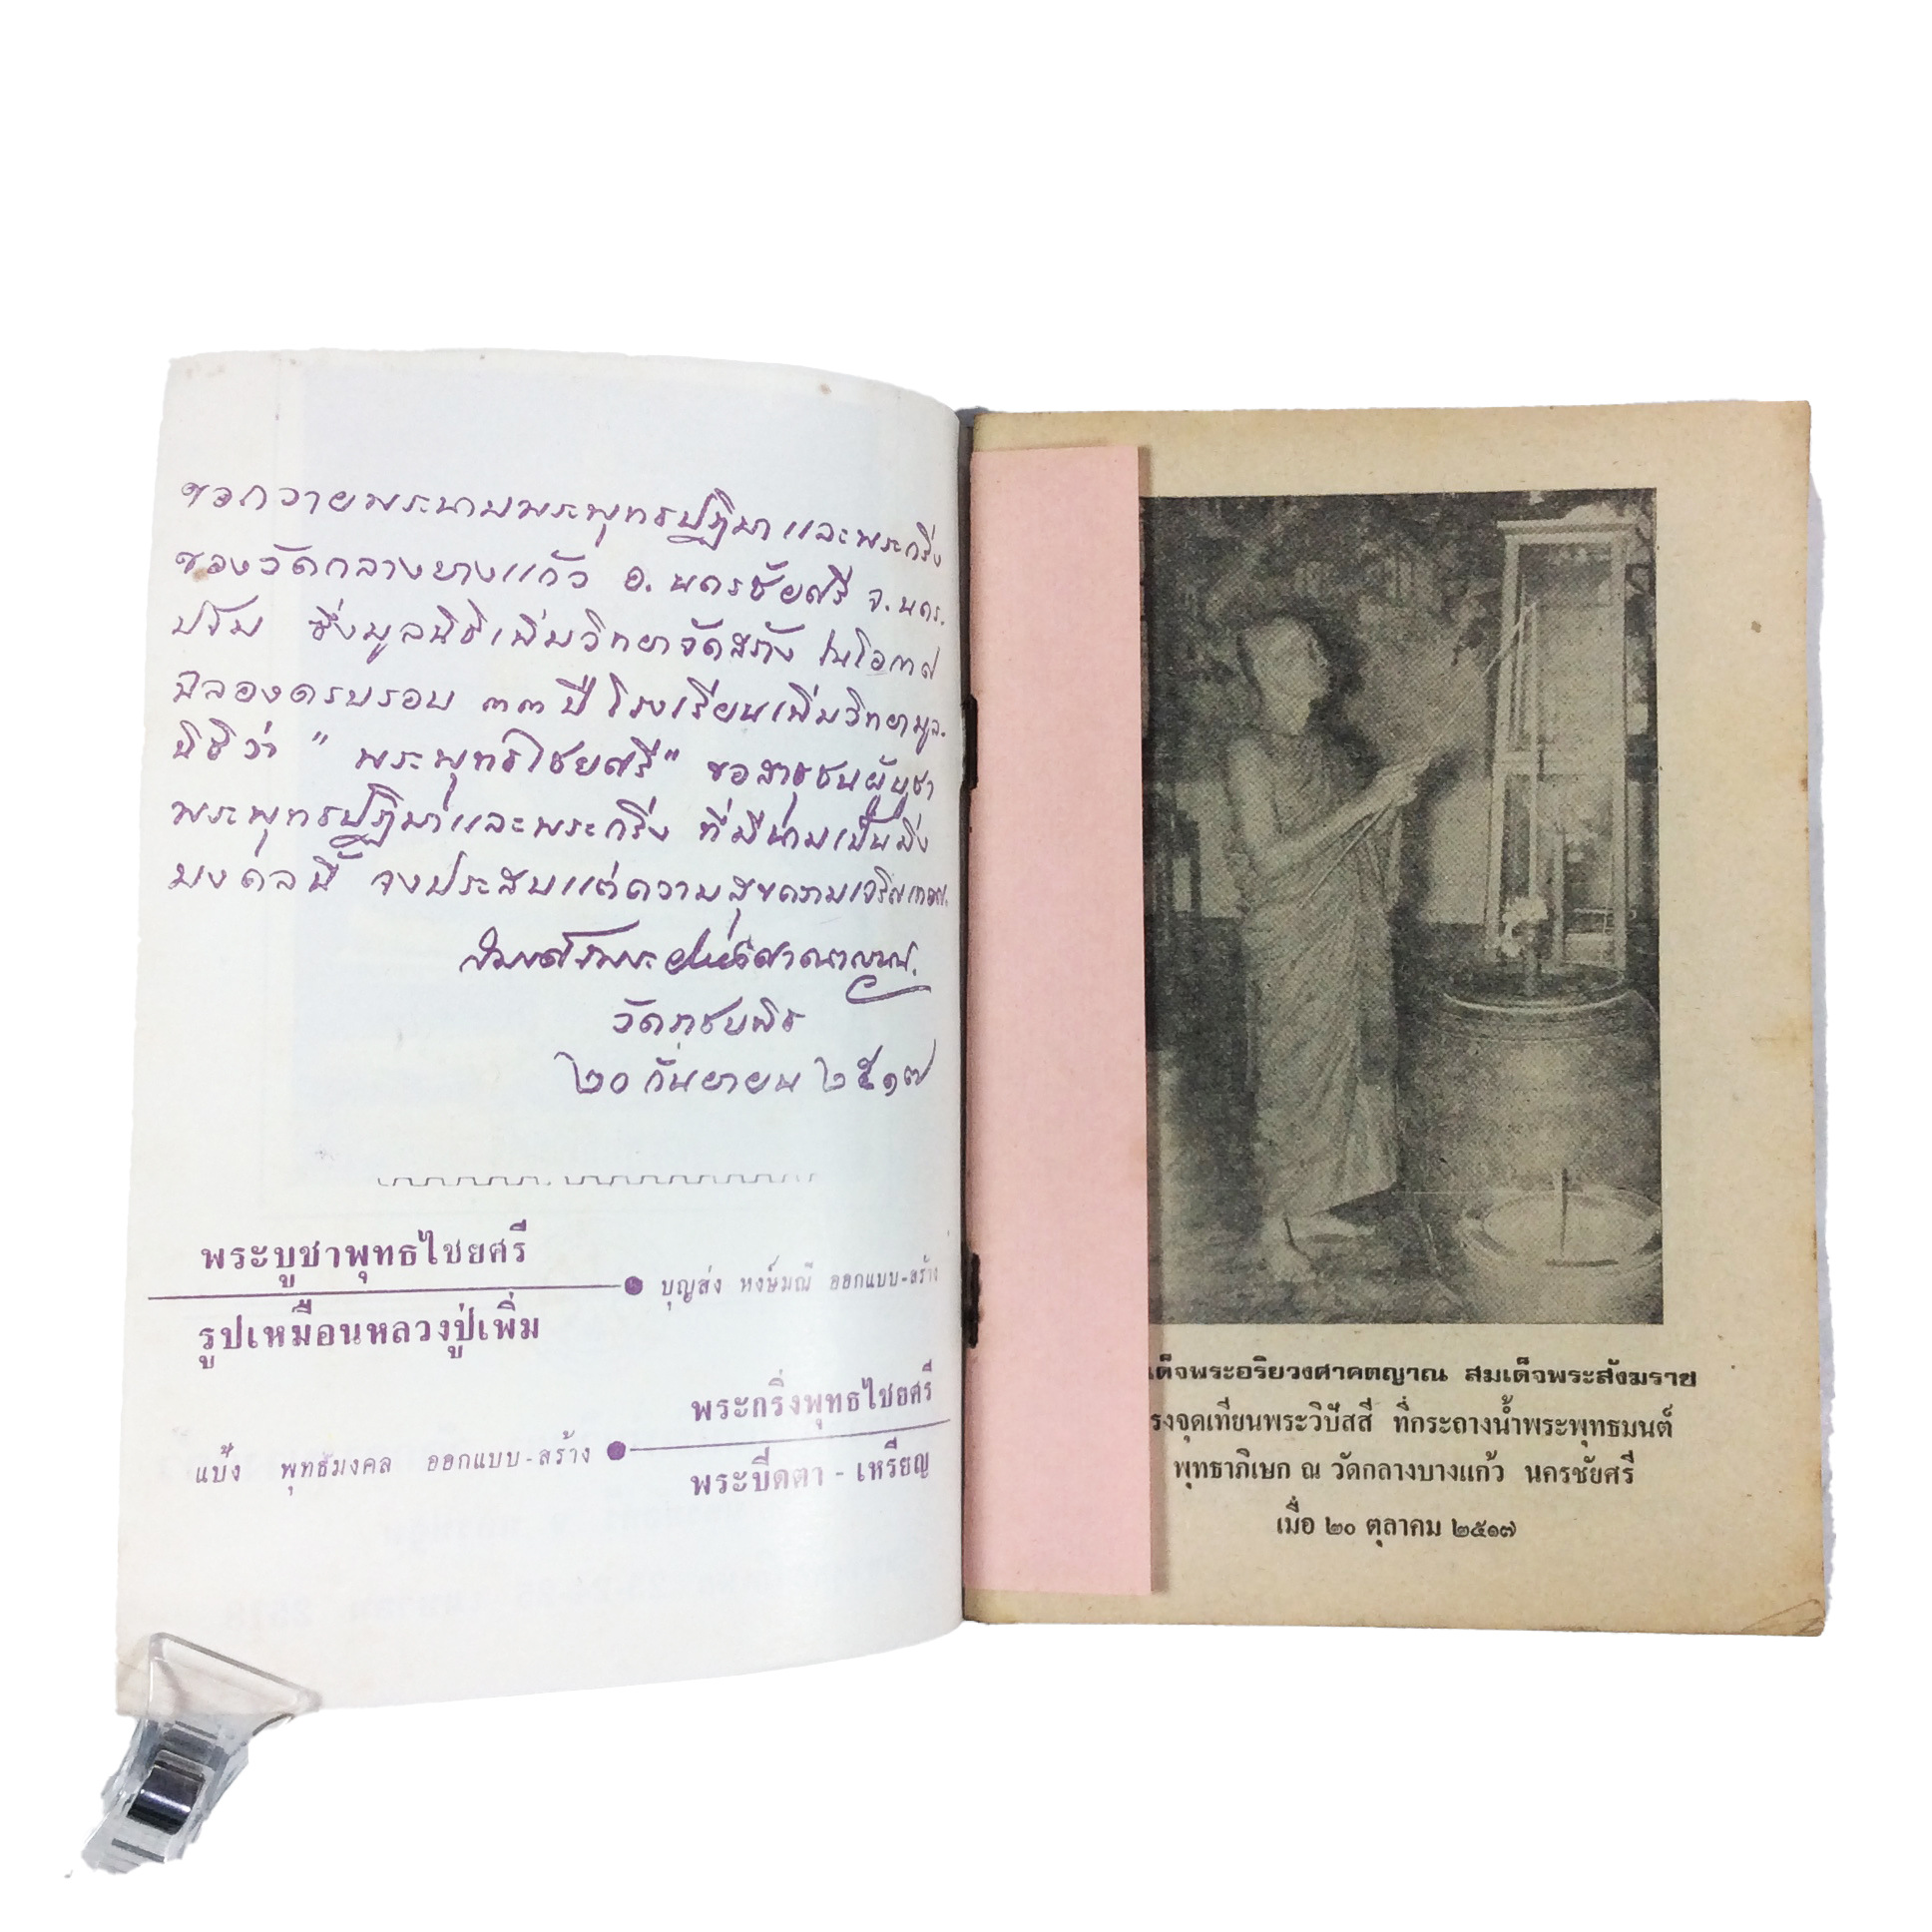 ขอถวายพระนามพระพุทธปฏิมาและพระกริ่ง
ของวัดกลางบางแก้ว อ.นครชัยศรี จ.นคร-
ปฐม ซึ่งมูลนิธิเพิ่มวิทยาจัดสร้าง ในโอกาส
ฉลองครบรอบ ๓๓ ปี โรงเรียนเพิ่มวิทยามูล-
นิธิว่า " พระพุทธไชยศรี" ขอสาธุชนผู้บูชา
พระพุทธปฏิมาและพระกริ่ง ที่มีนามเป็นมิ่ง
มงคลนี้ จงประสบแต่ความสุขความเจริญเทอญ.
วัดราชบพิธ
๒๐ กันยายน ๒๕๑๗
พระบูชาพุทธไชยศรี
บุญส่ง หงษ์มณี ออกแบบ-สร้าง
รูปเหมือนหลวงปู่เพิ่ม
พระกริ่งพุทธไชยศรี
แป๊ง พุทธมงคล ออกแบบ-สร้าง
พระปิดตา - เหรียญ
เด็จพระอริยวงศาคตญาณ สมเด็จพระสังฆราช
รงจุดเทียนพระวิปัสสี ที่กระถางน้ำพระพุทธมนต์
พุทธาภิเษก ณ วัดกลางบางแก้ว นครชัยศรี
เมื่อ ๒๐ ตุลาคม ๒๕๑๗